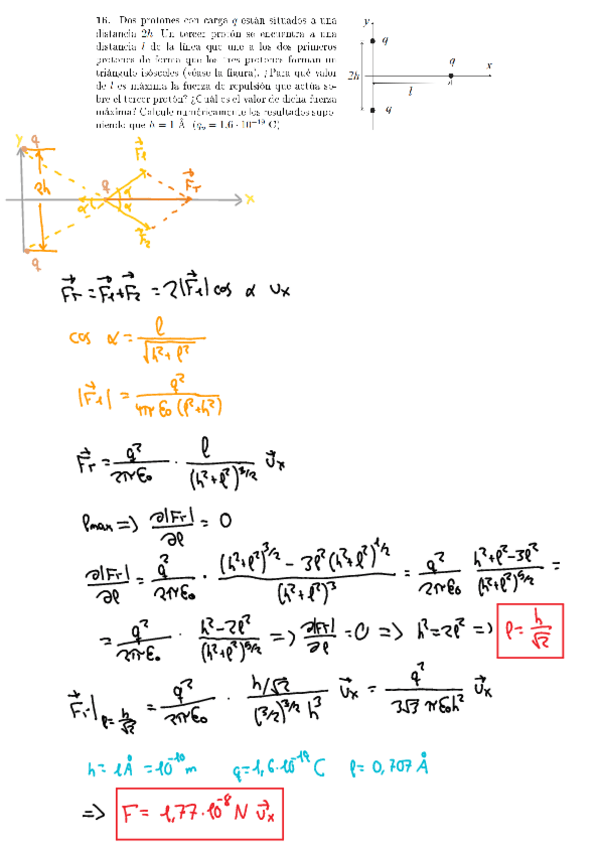 16. Dos protones con carga q están situados a una
distancia 2h. Un tercer protón se encuentra a una
distancia l de la línea que une a los dos primeros
protones de forma que los tres protones forman un
triángulo isósceles (véase la figura). ¿Para qué valor
de l es máxima la fuerza de repulsión que actúa so-
bre el tercer protón? ¿Cuál es el valor de dicha fuerza
máxima? Calcule numéricamente los resultados supo-
niendo que h = 1 Å (qₚ = 1.6 · 10⁻¹⁹ C)
y
q
q
x
2h
l
q
y
q
2h
q
α
α
α
F⃗₁
F⃗r
F⃗₂
x
q
F⃗r = F⃗₁ + F⃗₂ = 2|F⃗₁| cos α ux
cos α = l / √(h²+l²)
|F⃗₁| = q² / (4π ε₀ (l²+h²))
F⃗r = q²/(2πε₀) · l/(h²+l²)^(3/2) u⃗x
lmax => ∂|Fr|/∂l = 0
∂|Fr|/∂l = q²/(2πε₀) · ((h²+l²)^(3/2) − 3l²(h²+l²)^(1/2))/(h²+l²)³ = q²/(2πε₀) (h²+l²−3l²)/(h²+l²)^(5/2) =
= q²/(2πε₀) · (h²−2l²)/(h²+l²)^(5/2) => ∂|Fr|/∂l = 0 => h² = 2l² => l = h/√2
F⃗r|l=h/√2 = q²/(2πε₀) · (h/√2)/((3/2)^(3/2) h³) u⃗x = q²/(3√3 π ε₀h²) u⃗x
h = 1 Å = 10⁻¹⁰ m q = 1,6·10⁻¹⁹ C l = 0,707 Å
=> F = 1,77·10⁻⁸ N u⃗x